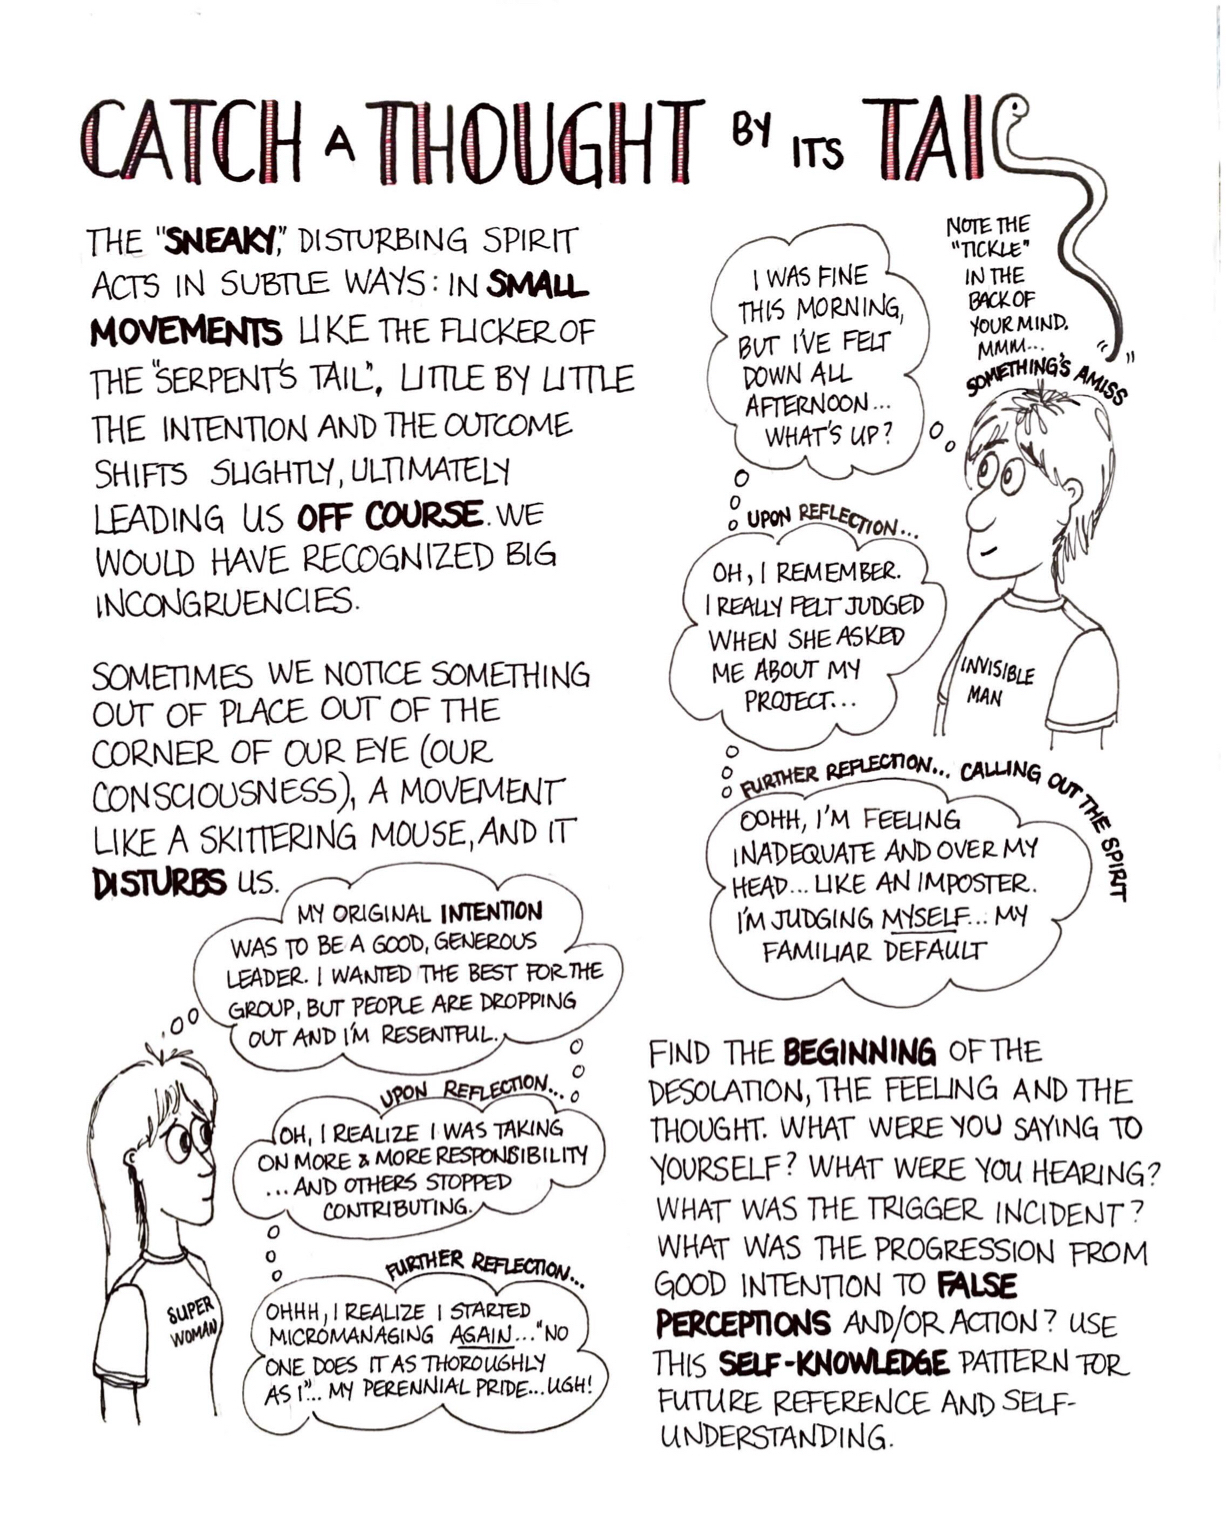 CATCH A THOUGHT BY ITS TAIL
THE "SNEAKY," DISTURBING SPIRIT
ACTS IN SUBTLE WAYS: IN SMALL
MOVEMENTS LIKE THE FLICKER OF
THE "SERPENT'S TAIL", LITTLE BY LITTLE
THE INTENTION AND THE OUTCOME
SHIFTS SLIGHTLY, ULTIMATELY
LEADING US OFF COURSE. WE
WOULD HAVE RECOGNIZED BIG
INCONGRUENCIES.
SOMETIMES WE NOTICE SOMETHING
OUT OF PLACE OUT OF THE
CORNER OF OUR EYE (OUR
CONSCIOUSNESS), A MOVEMENT
LIKE A SKITTERING MOUSE, AND IT
DISTURBS US.
MY ORIGINAL INTENTION
WAS TO BE A GOOD, GENEROUS
LEADER. I WANTED THE BEST FOR THE
GROUP, BUT PEOPLE ARE DROPPING
OUT AND I'M RESENTFUL.
UPON REFLECTION...
OH, I REALIZE I WAS TAKING
ON MORE & MORE RESPONSIBILITY
...AND OTHERS STOPPED
CONTRIBUTING.
FURTHER REFLECTION...
OHHH, I REALIZE I STARTED
MICROMANAGING AGAIN... "NO
ONE DOES IT AS THOROUGHLY
AS I"... MY PERENNIAL PRIDE...UGH!
SUPER
WOMAN
NOTE THE
"TICKLE"
IN THE
BACK OF
YOUR MIND.
MMM...
SOMETHING'S AMISS
I WAS FINE
THIS MORNING,
BUT I'VE FELT
DOWN ALL
AFTERNOON...
WHAT'S UP?
UPON REFLECTION...
OH, I REMEMBER.
I REALLY FELT JUDGED
WHEN SHE ASKED
ME ABOUT MY
PROJECT...
INVISIBLE
MAN
FURTHER REFLECTION... CALLING OUT THE SPIRIT
OOHH, I'M FEELING
INADEQUATE AND OVER MY
HEAD... LIKE AN IMPOSTER.
I'M JUDGING MYSELF... MY
FAMILIAR DEFAULT
FIND THE BEGINNING OF THE
DESOLATION, THE FEELING AND THE
THOUGHT. WHAT WERE YOU SAYING TO
YOURSELF? WHAT WERE YOU HEARING?
WHAT WAS THE TRIGGER INCIDENT?
WHAT WAS THE PROGRESSION FROM
GOOD INTENTION TO FALSE
PERCEPTIONS AND/OR ACTION? USE
THIS SELF-KNOWLEDGE PATTERN FOR
FUTURE REFERENCE AND SELF-
UNDERSTANDING.